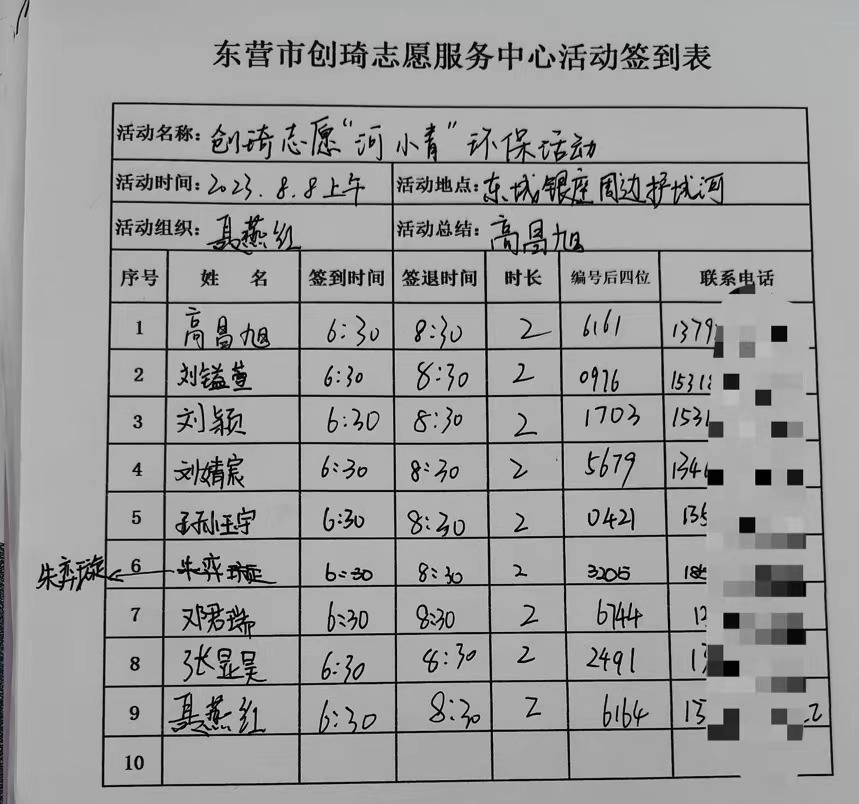 东营市创琦志愿服务中心活动签到表
活动名称：创琦志愿“河小青”环保活动
活动时间：2023.8.8上午 活动地点：东城银座周边护城河
活动组织：聂燕红 活动总结：高昌旭
序号 姓名 签到时间 签退时间 时长 编号后四位 联系电话
1 高昌旭 6:30 8:30 2 6161 1379
2 刘镒萱 6:30 8:30 2 0976 1531
3 刘颖 6:30 8:30 2 1703 1531
4 刘婧宸 6:30 8:30 2 5679 134
5 王孙玉宇 6:30 8:30 2 0421 135
朱弈璇 6 朱弈璇 6:30 8:30 2 3205 18
7 邓君瑞 6:30 8:30 2 6744 1
8 张显昊 6:30 8:30 2 2491 13
9 聂燕红 6:30 8:30 2 6164 13
10